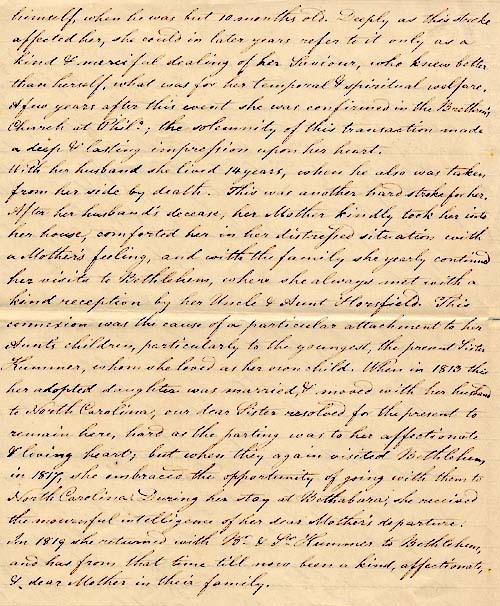 himself, when he was but 10 months old. Deeply as this stroke
affected her, she could in later years refer to it only as a
kind & merciful dealing of her Saviour, who knew better
than herself, what was for her temporal & spiritual welfare.
A few years after this event she was confirmed in the Brethren's
Church at Phila; the solemnity of this transaction made
a deep & lasting impression upon her heart.
With her husband she lived 14 years, when he also was taken
from her side by death. This was another hard stroke for her.
After her husband's decease, her Mother kindly took her into
her house, comforted her in her distressed situation with
a Mother's feeling, and with the family she yearly continued
her visits to Bethlehem, where she always met with a
kind reception by her Uncle & Aunt Horsfield. This
connexion was the cause of a particular attachment to her
Aunt's children, particularly to the youngest, the present Sister
Kummer, whom she loved as her own child. When in 1813 this
her adopted daughter was married, & moved with her husband
to North Carolina, our dear Sister resolved for the present to
remain here, hard as the parting was to her affectionate
& loving heart; but when they again visited Bethlehem,
in 1817, she embraced the opportunity of going with them to
North Carolina. During her stay at Bethabara, she received
the mournful intelligence of her dear Mother's departure.
In 1819 she returned with Br. & Sr. Kummer to Bethlehem,
and has from that time till now been a kind, affectionate,
& dear Mother in their family.